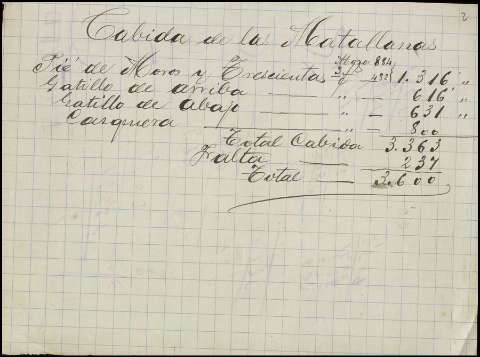 2
Cabida de las Matallanas
Moro 884
Pié de Moros y Trescientas 432 1.316 "
Gatillo de arriba — " — 616 "
Gatillo de abajo — " — 631 "
Casquera — 800
Total Cabida 3.363
Falta — 237
Total — 3.600